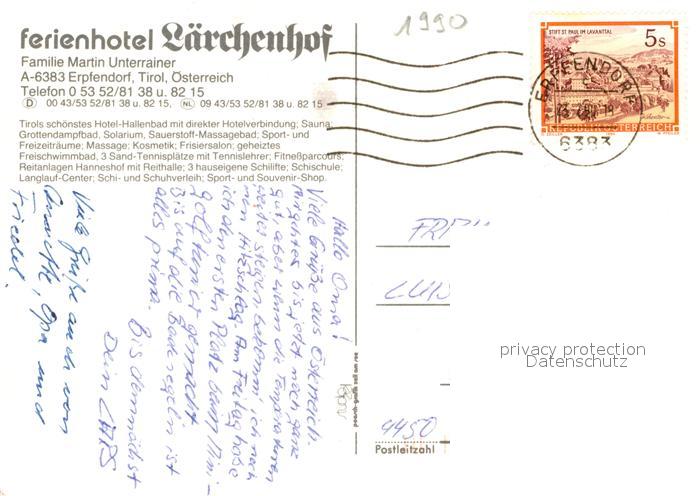 1990
ferienhotel Lärchenhof
Familie Martin Unterrainer
A-6383 Erpfendorf, Tirol, Österreich
Telefon 0 53 52/81 38 u. 82 15
D 00 43/53 52/81 38 u. 82 15, NL 09 43/53 52/81 38 u. 82 15
Tirols schönstes Hotel-Hallenbad mit direkter Hotelverbindung; Sauna;
Grottendampfbad, Solarium, Sauerstoff-Massagebad; Sport- und
Freizeiträume; Massage; Kosmetik; Frisiersalon; geheiztes
Freischwimmbad, 3 Sand-Tennisplätze mit Tennislehrer; Fitneßparcours;
Reitanlagen Hanneshof mit Reithalle; 3 hauseigene Schilifte; Schischule;
Langlauf-Center; Schi- und Schuhverleih; Sport- und Souvenir-Shop.
Hallo Oma!
Viele Grüße aus Österreich.
Mir gehts bis jetzt noch ganz
gut, aber wenn die Temperaturen
weiter steigen bekomm ich noch
nen Hitzschlag. Am Freitag habe
ich den ersten Platz beim Mini-
golfternier gemacht
Bis auf die Baderegeln ist
alles prima.
Bis demnächst
Dein LARS
Viele Grüße auch von
Annette, Opa und
Friedel.
STIFT ST. PAUL IM LAVANTTAL
5s
REPUBLIK ÖSTERREICH
ERPFENDORF
6383
4450
Postleitzahl
privacy protection
Datenschutz